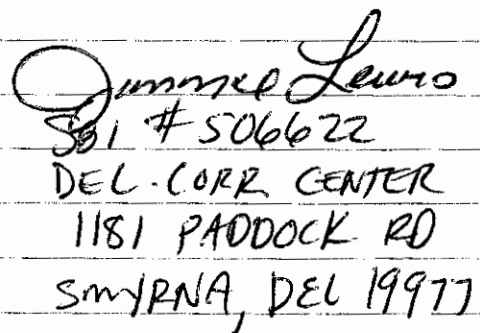 Jimmie Lewis
SBI # 506622
DEL. CORR CENTER
1181 PADDOCK RD
SMYRNA, DEL 19977